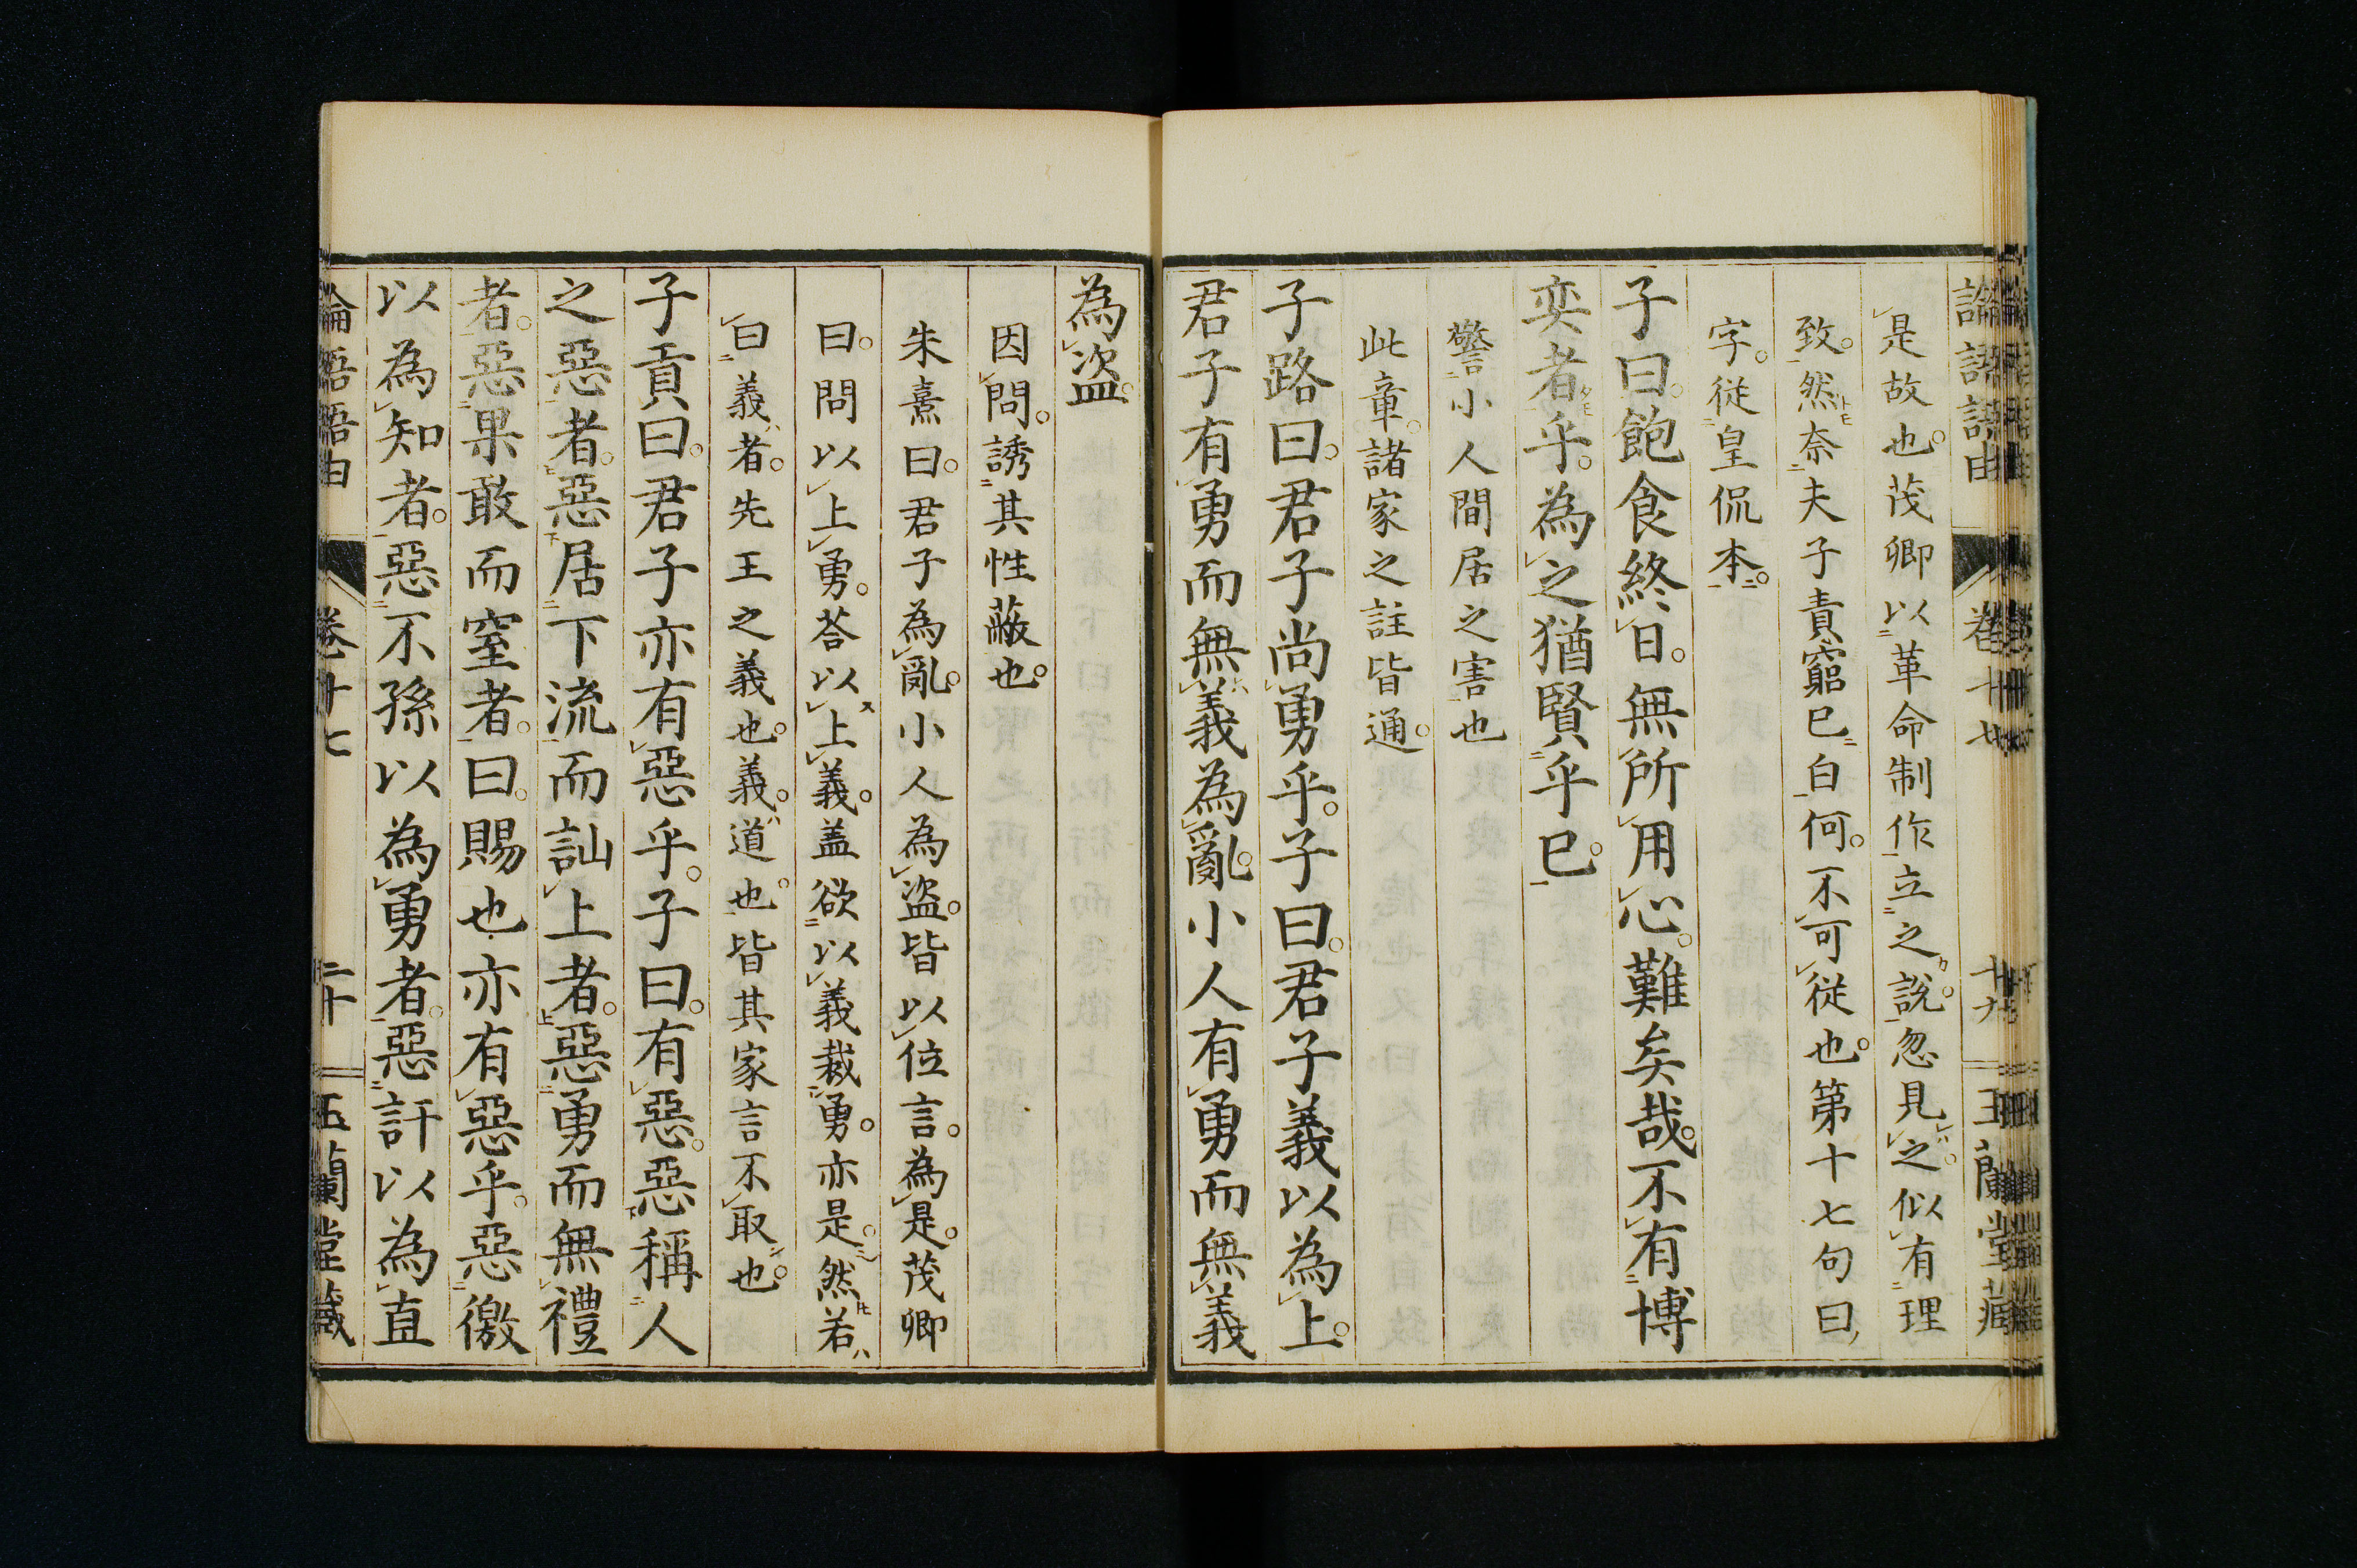 論語語由 卷十七 十九 玉蘭堂藏
是故也。茂卿以革命制作立之說。忽見之。似有理
致。然奈夫子責窮已白何。不可從也。第十七句曰
字。從皇侃本。
子曰。飽食終日。無所用心。難矣哉。不有博
奕者乎。為之猶賢乎已。
警小人間居之害也
此章。諸家之註皆通。
子路曰。君子尚勇乎。子曰。君子義以為上。
君子有勇而無義為亂。小人有勇而無義
為盜。
因問。誘其性蔽也。
朱熹曰。君子為亂。小人為盜。皆以位言。為是。茂卿
曰。問以上勇。荅以上義。盖欲以義裁勇。亦是。然若
曰義者。先王之義也。義。道也。皆其家言不取也。
子貢曰。君子亦有惡乎。子曰。有惡。惡稱人
之惡者。惡居下流而訕上者。惡勇而無禮
者。惡果敢而窒者。曰。賜也亦有惡乎。惡徼
以為知者。惡不孫以為勇者。惡訐以為直
論語語由 卷十七 二十 玉蘭堂藏